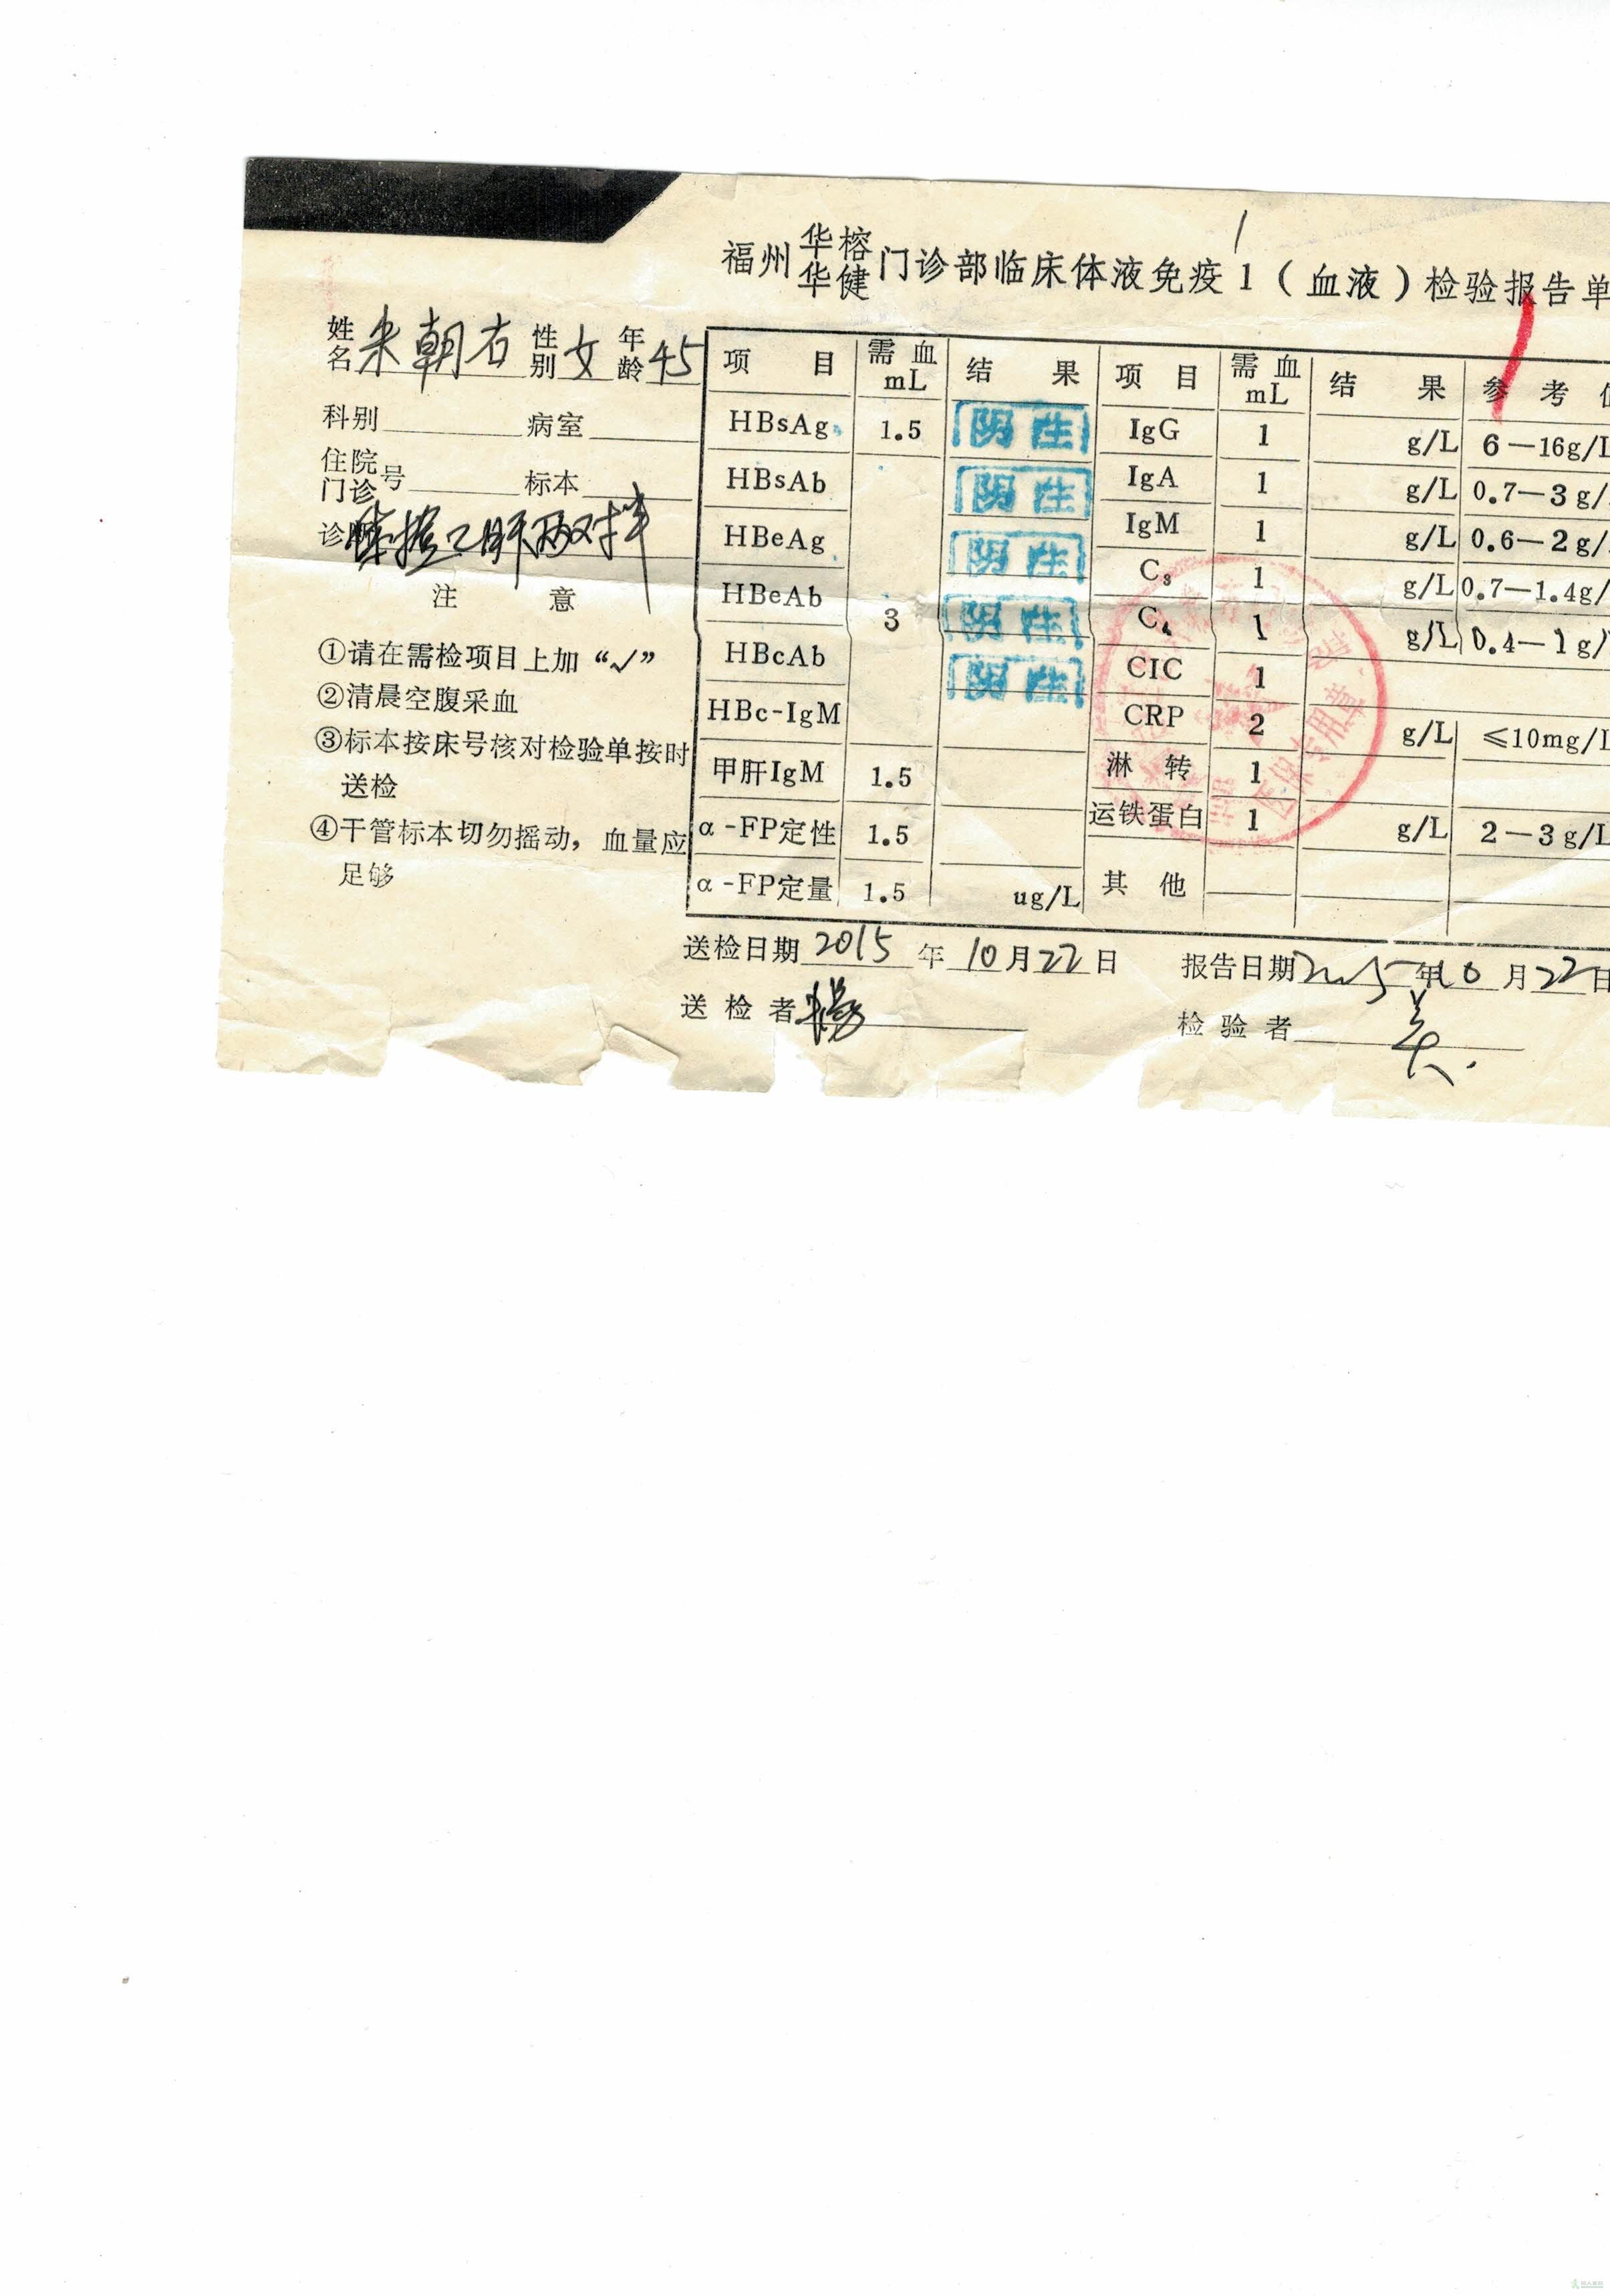 福州华榕华健门诊部临床体液免疫1(血液)检验报告单
姓名 朱朝右 性别 女 年龄 45
科别 病室
住院门诊号 标本
诊断 乙肝两对半
注 意
①请在需检项目上加“√”
②清晨空腹采血
③标本按床号核对检验单按时
送检
④干管标本切勿摇动，血量应
足够
项 目 需血mL 结 果 项 目 需血mL 结 果 参 考
HBsAg 1.5 阴性 IgG 1 g/L 6—16g/L
HBsAb 阴性 IgA 1 g/L 0.7—3g/
HBeAg 阴性 IgM 1 g/L 0.6—2g/
HBeAb 3 阴性 C₃ 1 g/L 0.7—1.4g/
HBcAb 阴性 C₄ 1 g/L 0.4—1g/
HBc-IgM CIC 1
CRP 2 g/L ≤10mg/L
甲肝IgM 1.5 淋 转 1
α-FP定性 1.5 运铁蛋白 1 g/L 2—3g/L
α-FP定量 1.5 ug/L 其 他
专用章
送检日期 2015 年 10 月 22 日 报告日期 2015 年 10 月 22 日
送 检 者 检 验 者